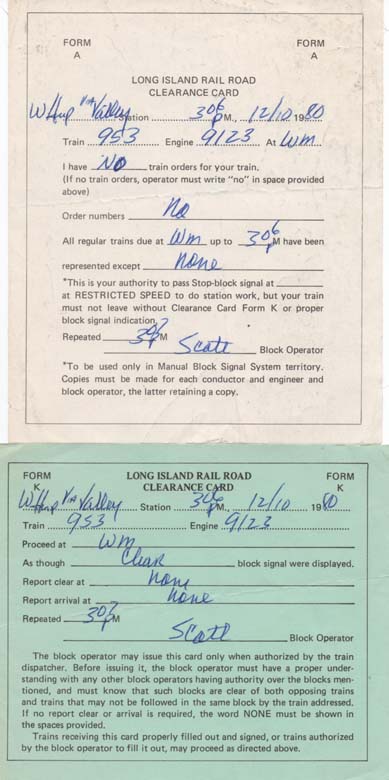 FORM A FORM A
LONG ISLAND RAIL ROAD
CLEARANCE CARD
W Hemp Via Valley Station 306 P M., 12/10 1980
Train 953 Engine 9123 At WM
I have NO train orders for your train.
(If no train orders, operator must write "no" in space provided
above)
Order numbers No
All regular trains due at WM up to 306 P M have been
represented except None
*This is your authority to pass Stop-block signal at
at RESTRICTED SPEED to do station work, but your train
must not leave without Clearance Card Form K or proper
block signal indication.
Repeated P M
Scott Block Operator
*To be used only in Manual Block Signal System territory.
Copies must be made for each conductor and engineer and
block operator, the latter retaining a copy.
FORM K LONG ISLAND RAIL ROAD FORM K
CLEARANCE CARD
W Hemp Via Valley Station 306 P M., 12/10 1980
Train 953 Engine 9123
Proceed at WM
As though Clear block signal were displayed.
Report clear at None
Report arrival at None
Repeated 307 P M
Scott Block Operator
The block operator may issue this card only when authorized by the train
dispatcher. Before issuing it, the block operator must have a proper under-
standing with any other block operators having authority over the blocks men-
tioned, and must know that such blocks are clear of both opposing trains
and trains that may not be followed in the same block by the train addressed.
If no report clear or arrival is required, the word NONE must be shown in
the spaces provided.
Trains receiving this card properly filled out and signed, or trains authorized
by the block operator to fill it out, may proceed as directed above.